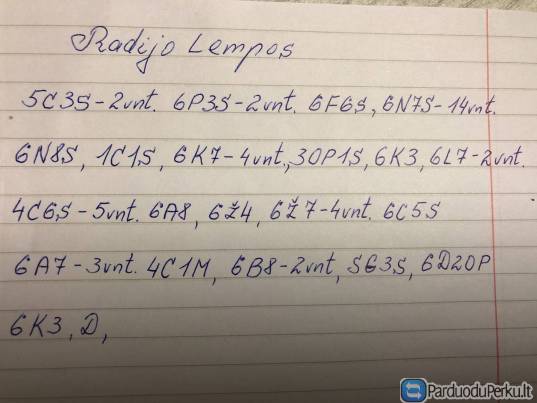 Radijo Lempos
5C3S-2vnt. 6P3S-2vnt. 6F6S, 6N7S-14vnt.
6N8S, 1C1S, 6K7-4vnt., 30P1S, 6K3, 6L7-2vnt.
4C6S-5vnt. 6A8, 6Ž4, 6Ž7-4vnt. 6C5S
6A7-3vnt. 4C1M, 6B8-2vnt, SG3S, 6D20P
6K3, D,
ParduoduPerku.lt